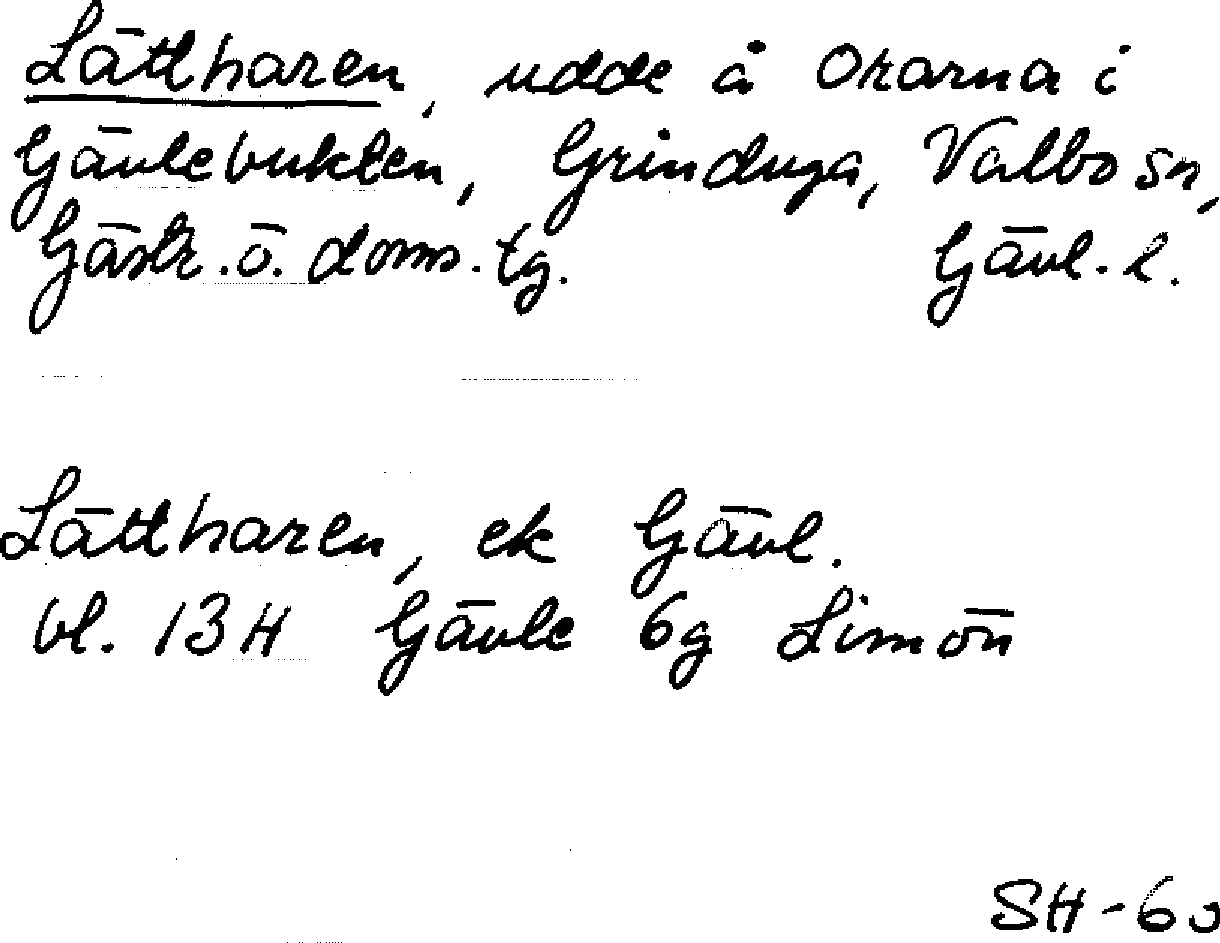 Lättharen, udde å Orarna i
Gävlebukten, Grinduga, Valbo sn,
Gästr. ö. doms. tg. Gävl. l.
Lättharen, ek Gävl.
bl. 13H Gävle 6g Limön
SH-60